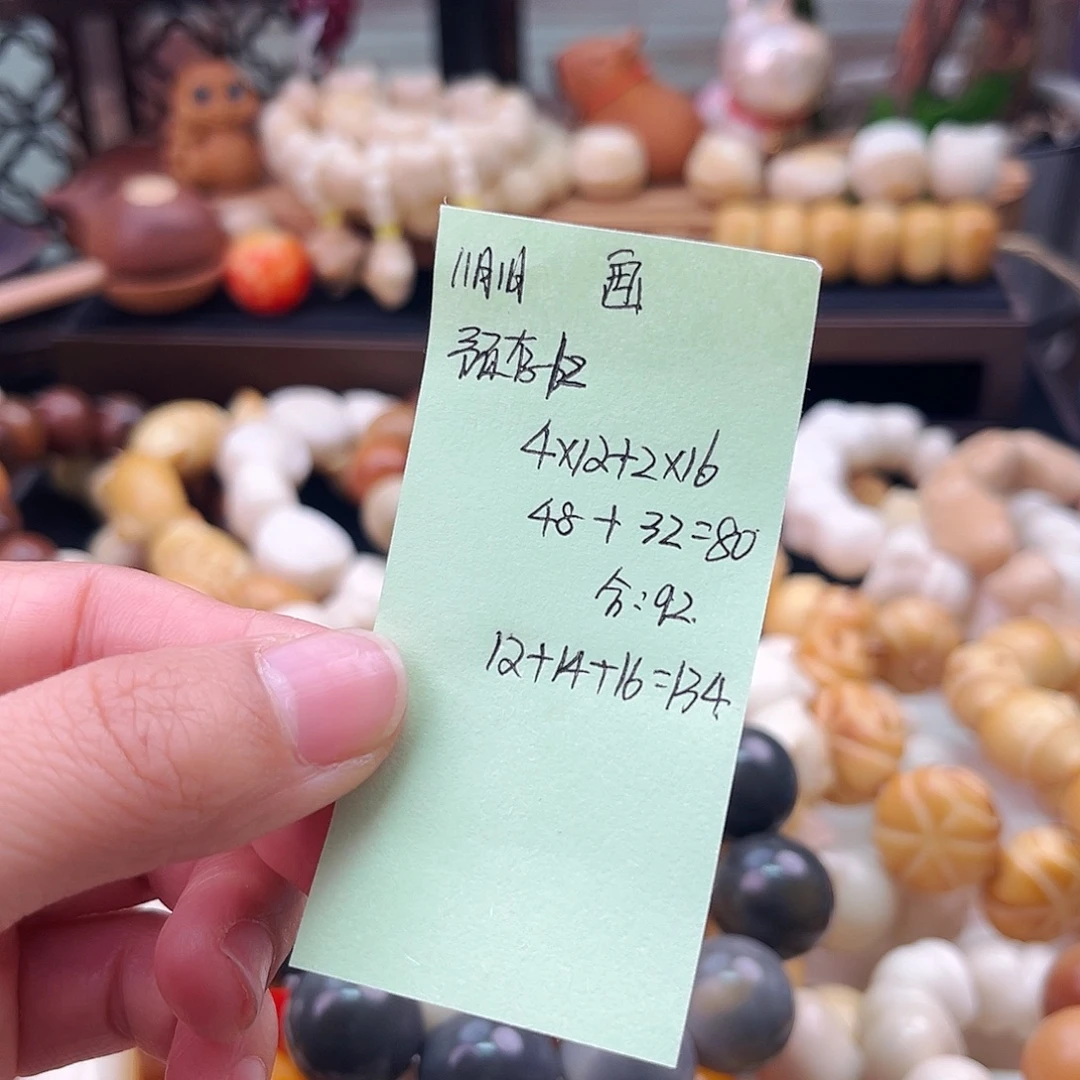 11月1日 画
预存-12
4×12+2×16
48+32=80
合:92.
12+14+16=134.